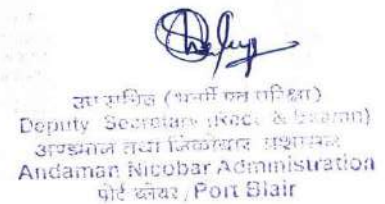 उप सचिव (भर्ती एवं परीक्षा)
Deputy Secretary (Rectt & Exam)
अण्डमान तथा निकोबार प्रशासन
Andaman Nicobar Administration
पोर्ट ब्लेयर / Port Blair